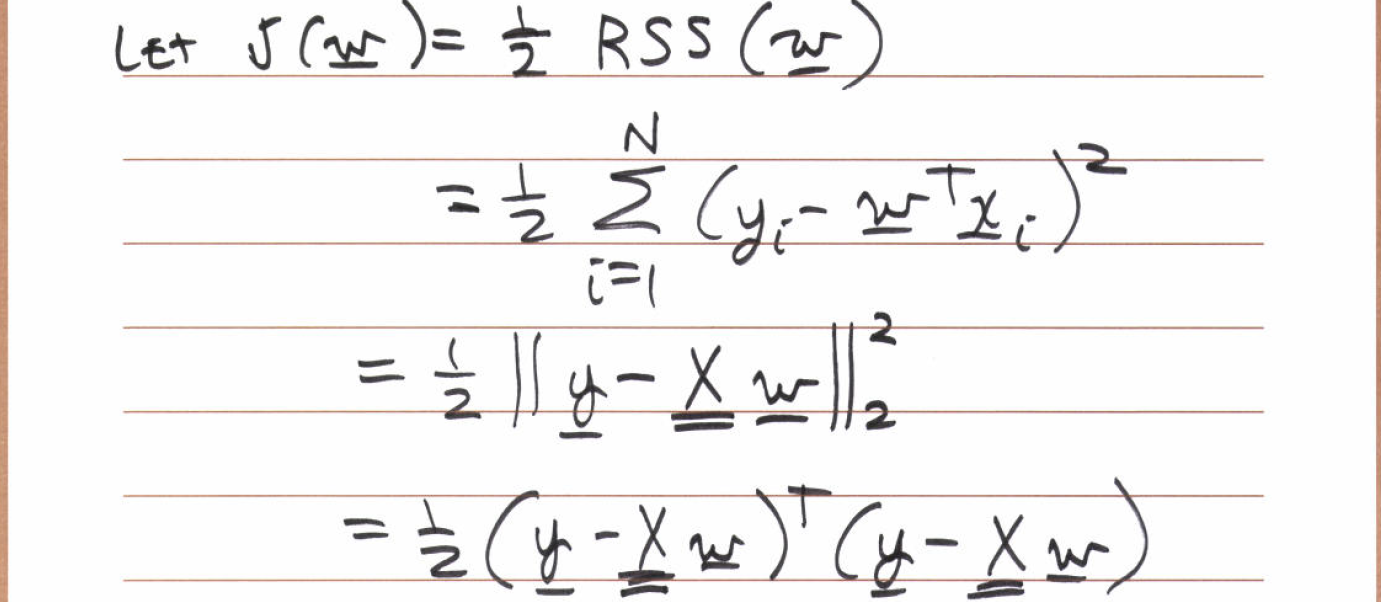 Let J(w̲) = ½ RSS(w̲)
= ½ ∑_{i=1}^{N} (y_i - w̲ᵀx̲_i)²
= ½ ‖y̲ - X̳ w̲‖₂²
= ½ (y̲ - X̳ w̲)ᵀ(y̲ - X̳ w̲)